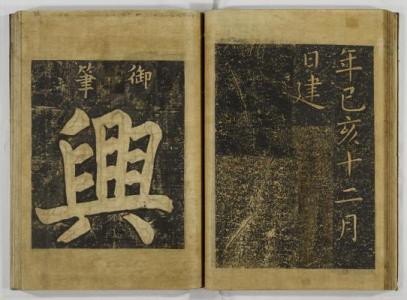 年己亥十二月
日建
御
筆
興